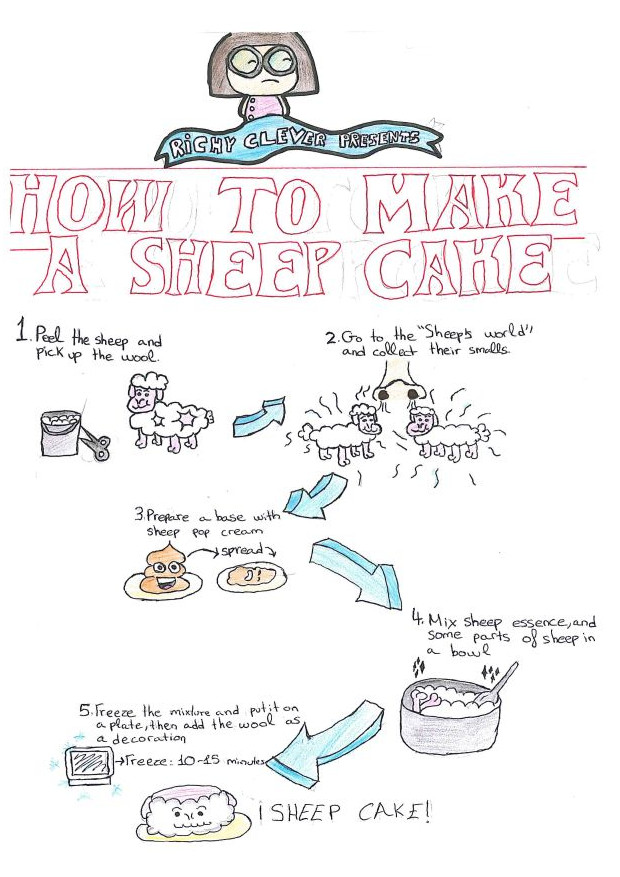 RiCHY CLEVER PRESENTS
HOW TO MAKE
A SHEEP CAKE
1. Peel the sheep and
pick up the wool.
2. Go to the "Sheep's world"
and collect their smalls.
3. Prepare a base with
sheep pop cream
spread
4. Mix sheep essence, and
some parts of sheep in
a bowl
5. Freeze the mixture and put it on
a plate, then add the wool as
a decoration
Freeze: 10-15 minutes
¡SHEEP CAKE!